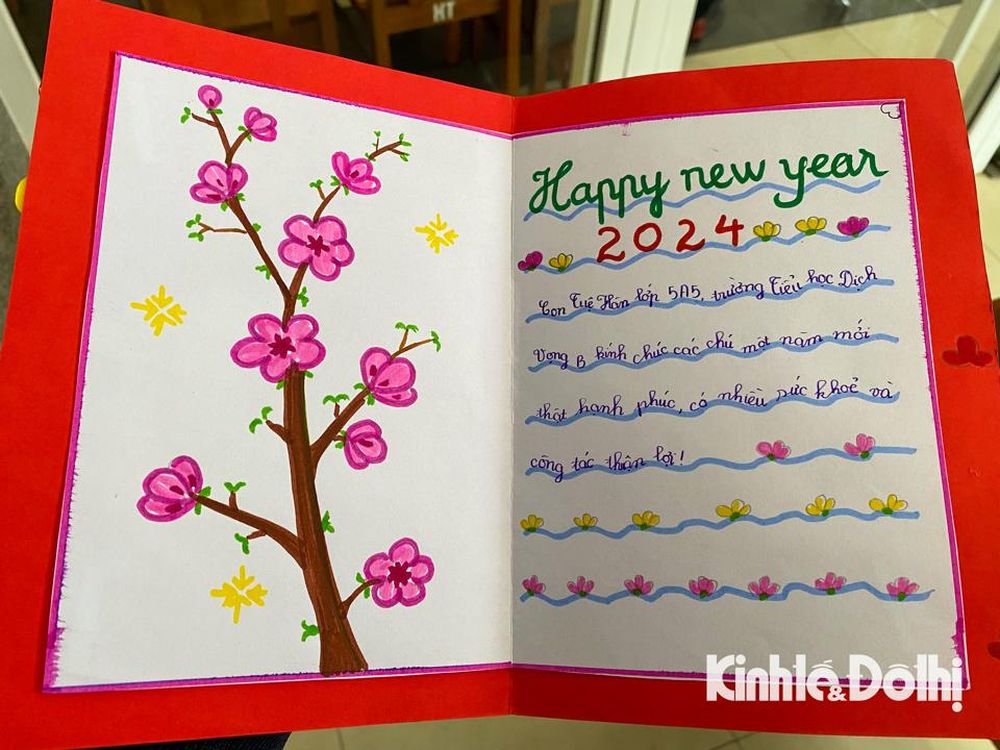 HT
Happy new year
2024
Con Tuệ Hân lớp 5A5, trường Tiểu học Dịch
Vọng B kính chúc các chú một năm mới
thật hạnh phúc, có nhiều sức khoẻ và
công tác thuận lợi!
Kinhtế&Đôthị